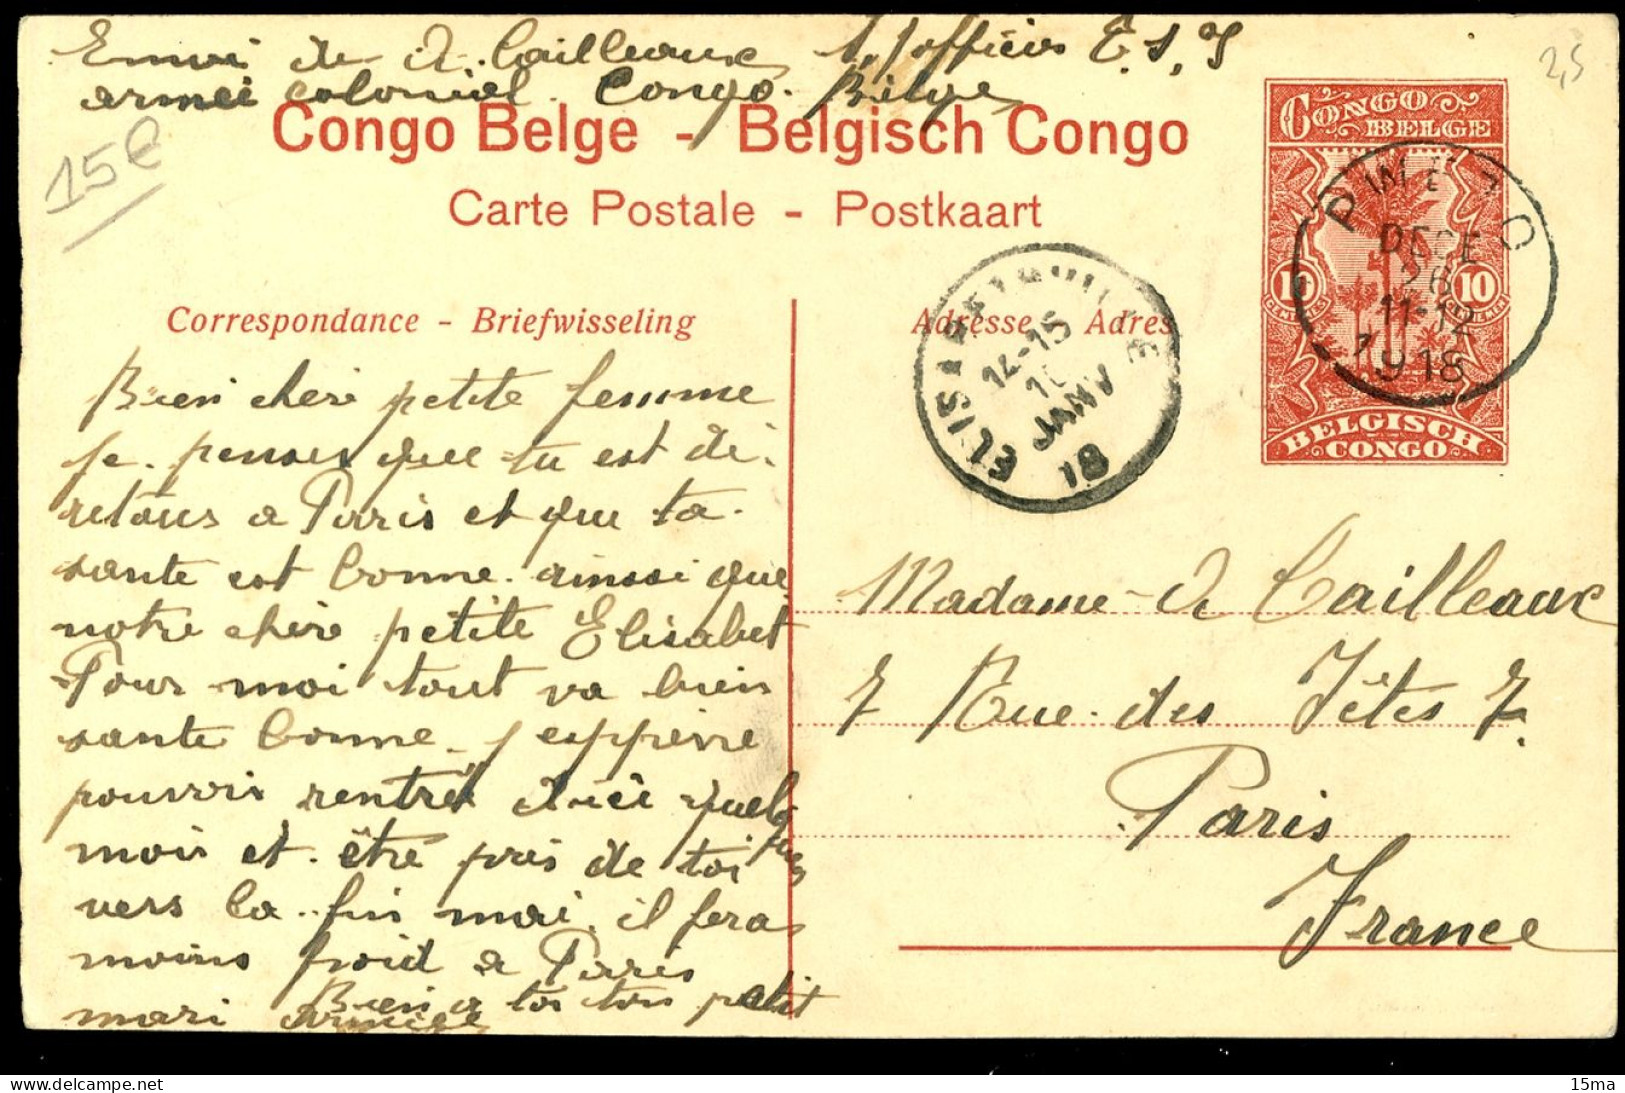 Envoi de A. Cailleaux S./officier T. S. F
armeé colonial. Congo. Belge
2,5
15€
Congo Belge - Belgisch Congo
Carte Postale - Postkaart
CONGO
BELGE
10 10
BELGISCH
CONGO
DECE
26
11-12
1918
Correspondance - Briefwisseling
Adresse - Adres
ELISABETHVILLE
14-15
JANV
18
Bien chère petite femme
je. penses que tu est de.
retour a Paris et que ta.
sante est bonne. ainssi que
notre chère petite Elisabet
Pour moi tout va bien
sante bonne - j'esppère
pouvoir rentré d'ici quelques
moir et. être près de toi
vers la fin mai. il fera
moins froid a Paris
Bien a toi ton petit
mari
Madame A Cailleaux
7 Rue des Fêtes 7.
Paris
France
15ma